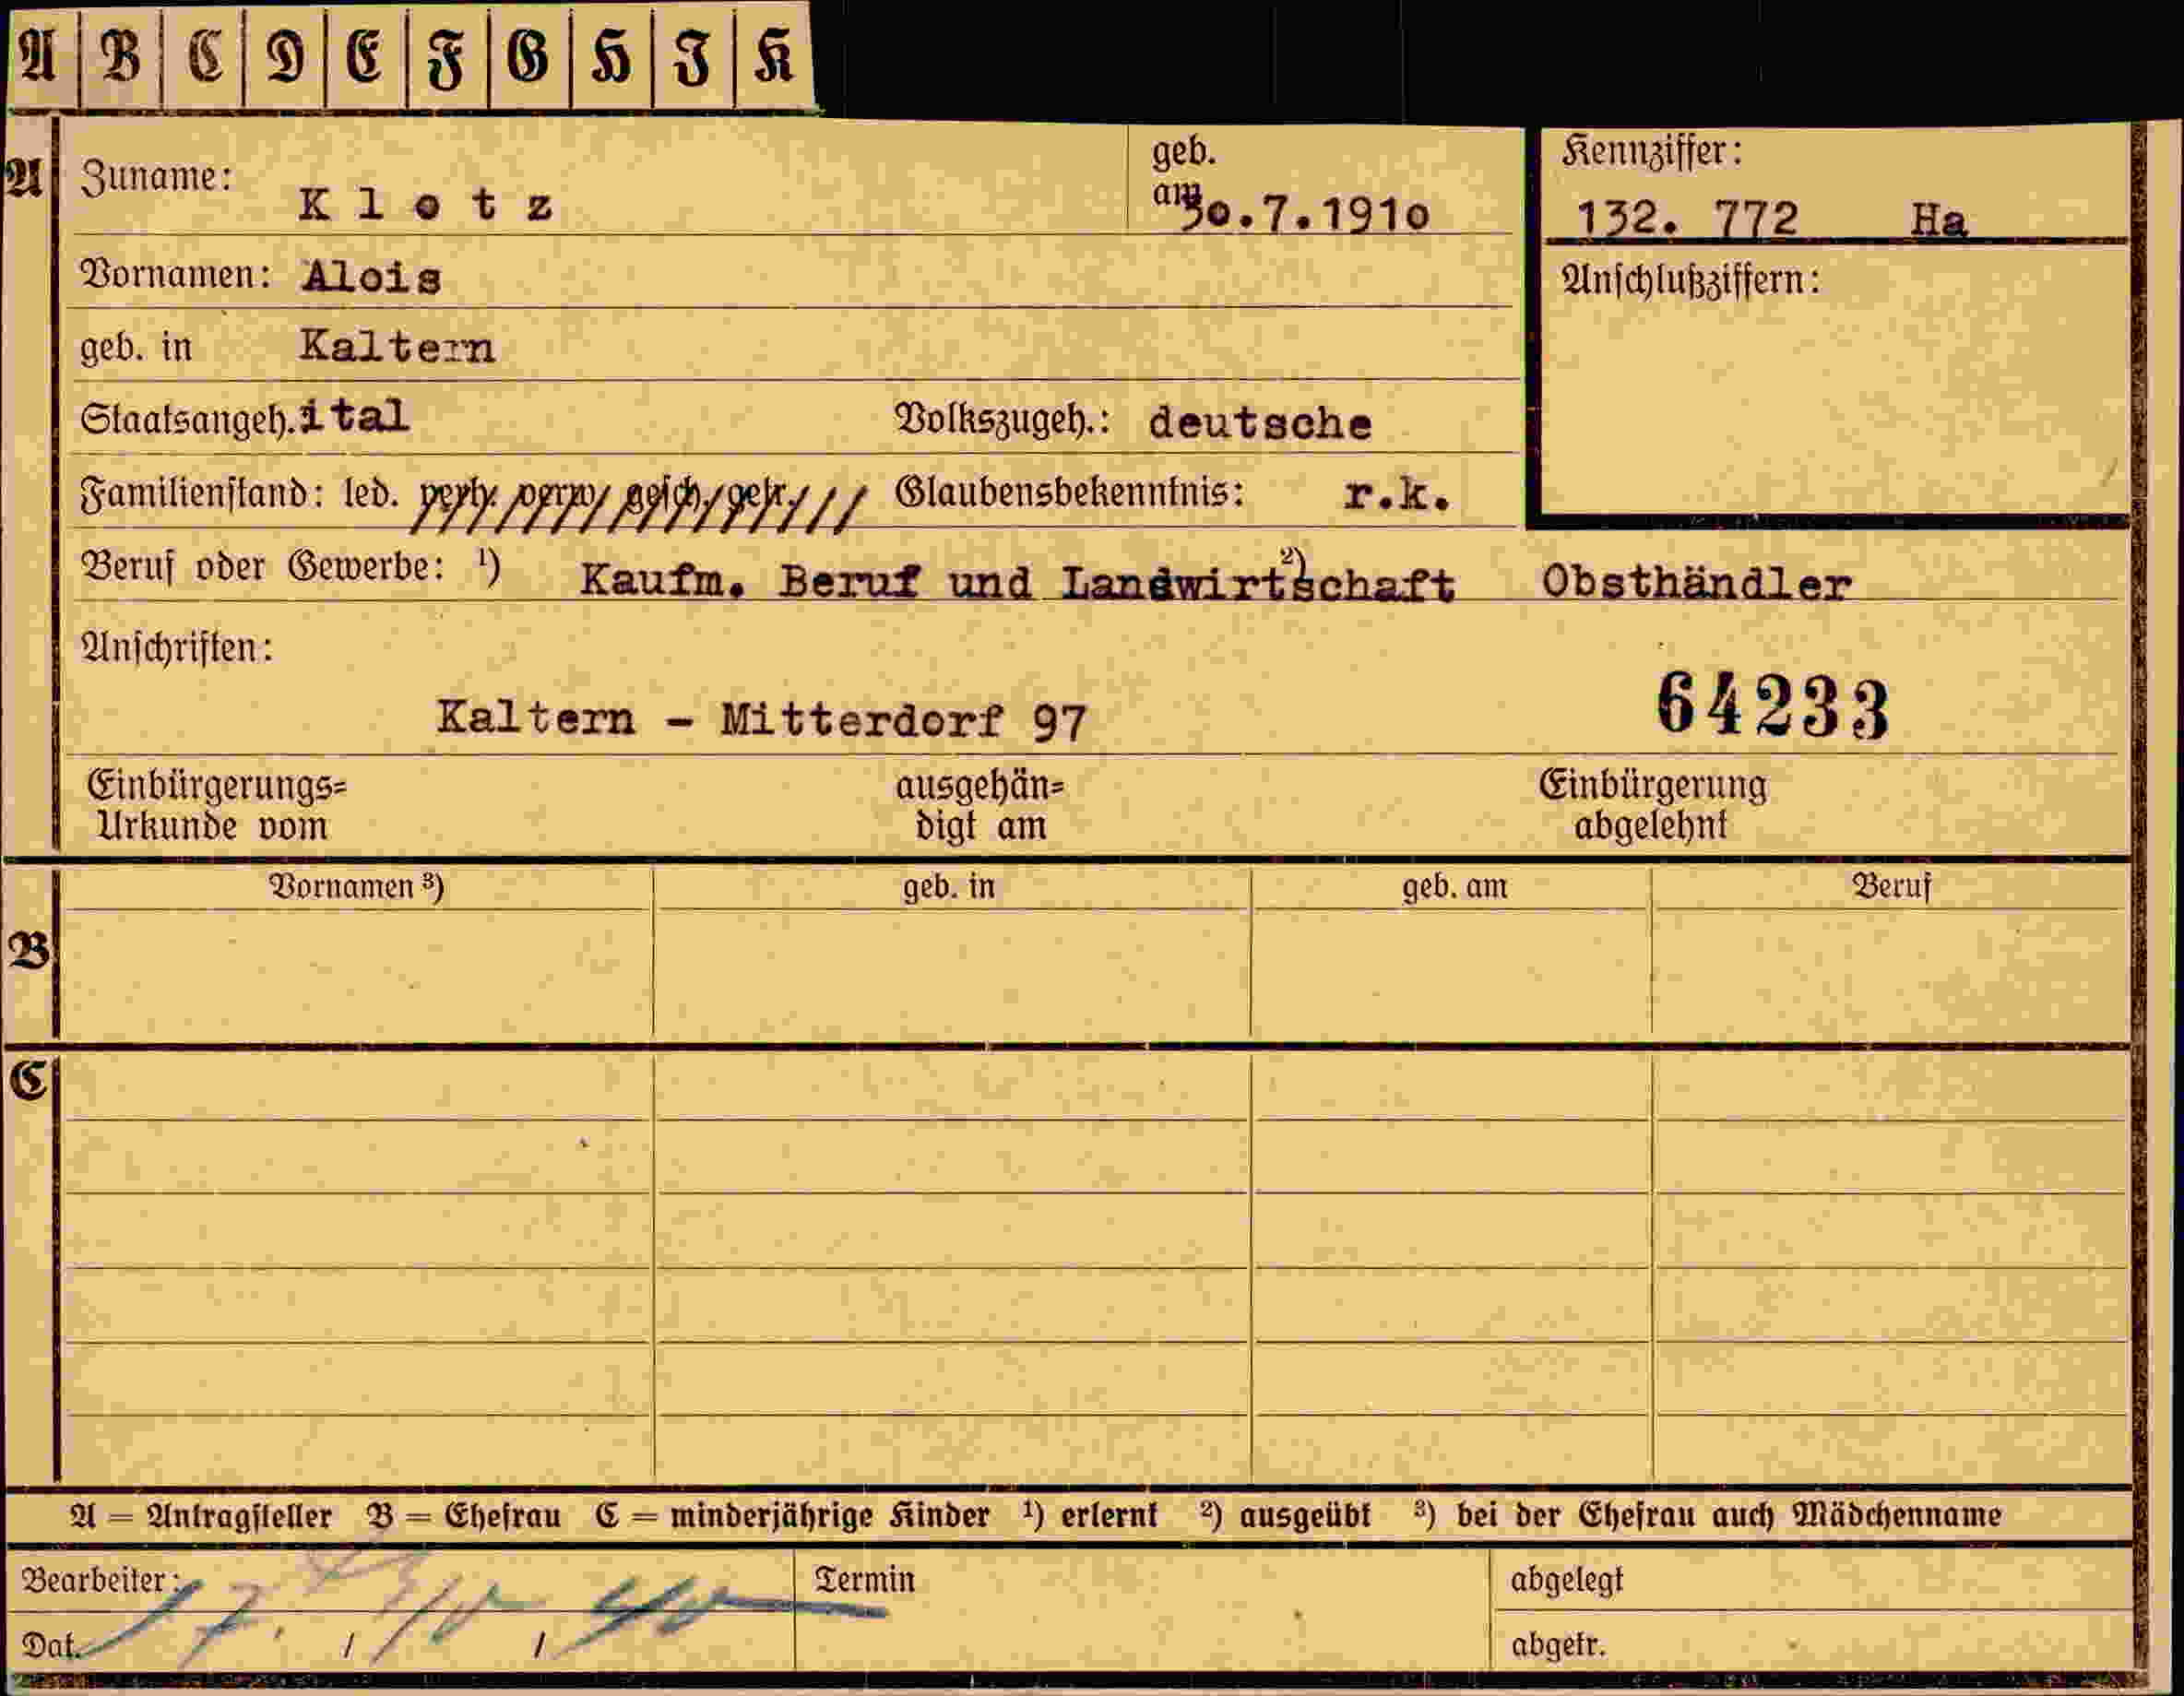 A B C D E F G H I K
A Zuname: Klotz geb. am 30.7.1910 Kennziffer:
132. 772 Ha
Vornamen: Alois Anschlußziffern:
geb. in Kaltern
Staatsangeh. ital Volkszugeh.: deutsche
Familienstand: led. verh. verw. gesch. getr. Glaubensbekenntnis: r.k.
Beruf oder Gewerbe: ¹) Kaufm. Beruf und Landwirtschaft ²) Obsthändler
Anschriften:
Kaltern - Mitterdorf 97 64233
Einbürgerungs= ausgehän= Einbürgerung
Urkunde vom digt am abgelehnt
Vornamen ³) geb. in geb. am Beruf
B
C
A = Antragsteller B = Ehefrau C = minderjährige Kinder ¹) erlernt ²) ausgeübt ³) bei der Ehefrau auch Mädchenname
Bearbeiter: Termin abgelegt
Dat. 17. / 10 / 40 abgetr.